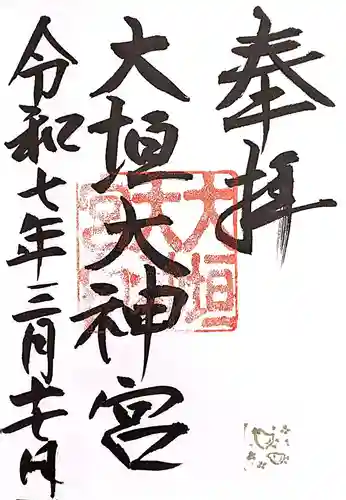 奉拝
大垣大神宮
令和七年三月十七日
大垣
大神
宮